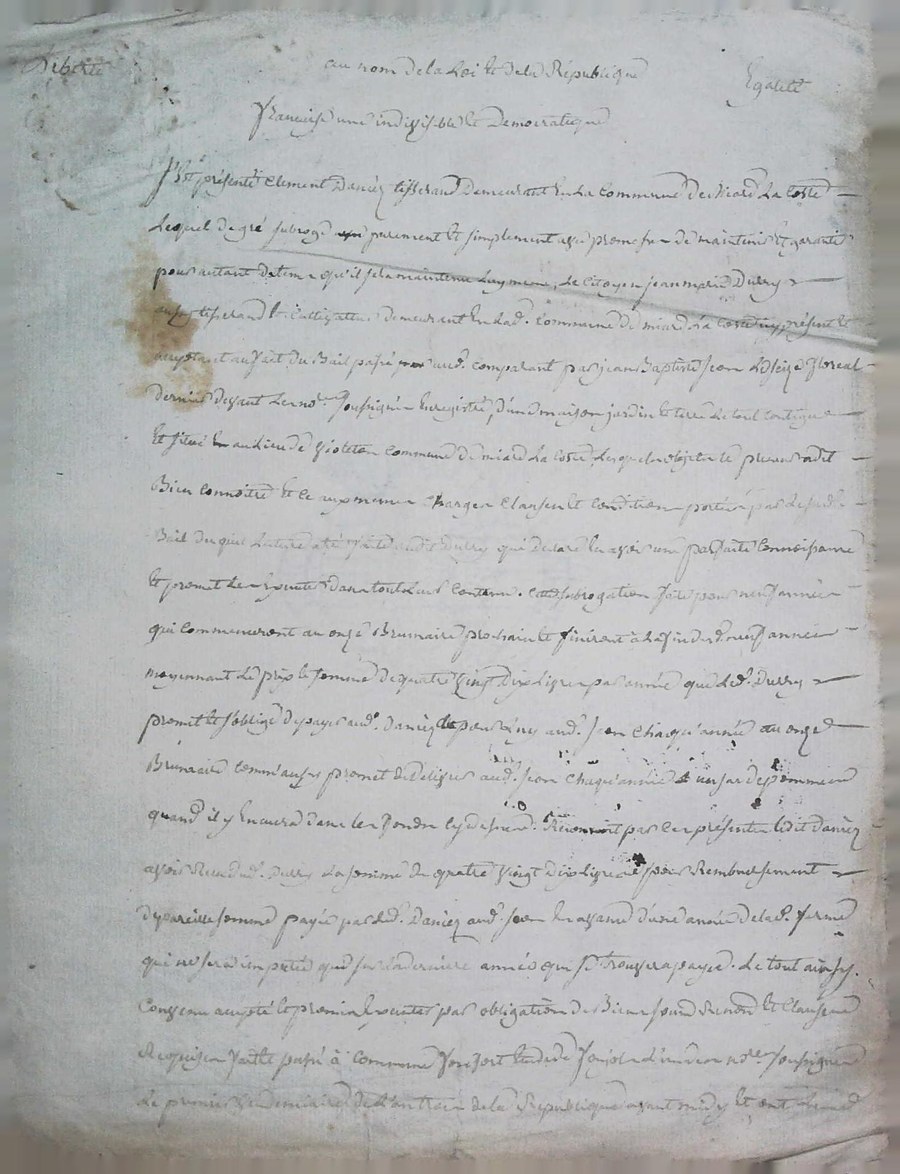 Liberté au nom de la Loi et de la République Egalité
françoise une indivisible et Democratique
Est présenté Clement Daniez tisserand Demeurant En La Commune de La Coste
Lequel de gré subroge purement et simplement avec promesse de maintenir et garantir
pour autant de tems qu'il sera maintenu Luy meme, Le Citoyen jean marie Durry
aussy tisserand et Cultivateur demeurant En Lad. Commune de miard La Coste icy présent et
acceptant au fait du Bail passé aud. comparant par jean Baptiste jeon Le seize floreal
dernier devant Le no.re soussigné Enregistré d'une maison jardin et terre Le tout contigue
Et situé au Lieu de commune de miard La Coste Lesquels objets Le preneur a dit
Bien Connoitre Et ce aux memes Charges Clauses et Conditions portées par Led.
Bail duquel Lecture a été faite audit Durry qui Declare En avoir une parfaite Connoissance
Et promet de L'executer dans tout son Contenu. Cette subrogation faite pour neuf années
qui Commenceront au onze Brumaire prochain Et finiront à La fin desd. neuf années
moyennant Le prix et somme de quatre vingt dix Livres par année que Led. Durry
promet et s'oblige de payer aud. Daniez pour Luy aud. jeon Chaqu'année au onze
Brumaire Comm'aussy promet de delivrer aud. jeon Chaqu'année un sac de pommes
quand il y En aura dans Les fonds cy designés. Reconnoit par Les présentes Ledit Daniez
avoir Reçu dud. Durry La somme de quatre vingt dix Livres pour Remboursement
de pareille somme payée par Led. Daniez aud. jeon En avance d'une année de lad. ferme
qui ne sera imputée que sur La derniere année qui se trouvera payée. Le tout ainsy
Convenu accepté et promis Executer par obligation de Biens et Clauses
Requises fait et passé à Commune Etude de no.re soussigné
Le premier vendemiaire de L'an trois de la République avant midy Et ont